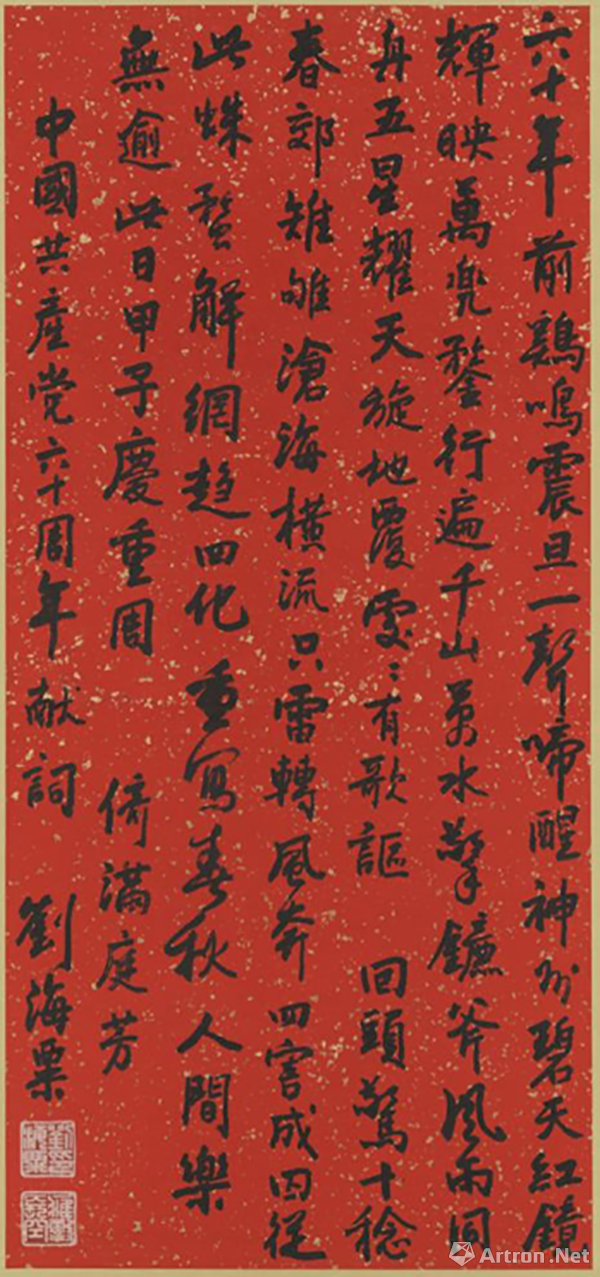 六十年前鷄鳴震旦一聲啼醒神州碧天紅鏡
輝映萬兜鍪行遍千山萬水擎鐮斧風雨同
舟五星耀天旋地覆處〻有歌謳 回頭驚十稔
春郊雉雊滄海橫流只雷轉風奔四害成囚從
此蛛蝥解網趨四化重寫春秋人間樂
無逾此日甲子慶重周 倚滿庭芳
中國共產党六十周年献詞 劉海粟
Artron.Net